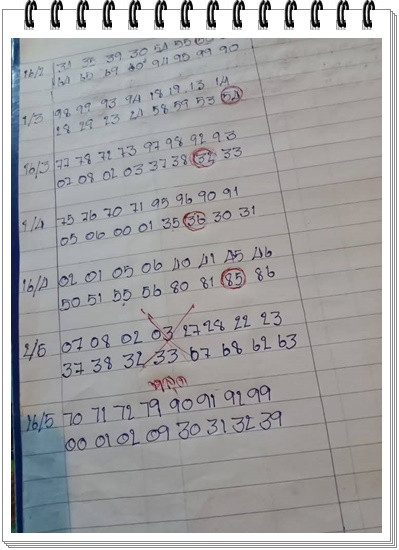 16/2 31 35 39 30 54 55
90 94 95 99 90
1/3 98 99 93 94 18 19 13 14
28 29 23 24 58 59 53 54
16/3 77 78 72 73 97 98 92 93
07 08 02 03 37 38 32 33
1/4 75 76 70 71 95 96 90 91
05 06 00 01 35 36 30 31
16/4 02 01 05 06 40 41 45 46
50 51 55 56 80 81 85 86
2/5 07 08 02 03 27 28 22 23
37 38 32 33 67 68 62 63
16/5 70 71 72 79 90 91 92 99
00 01 02 09 30 31 32 39